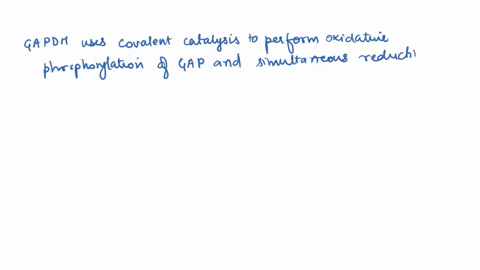 GAPDH uses covalent catalysis to perform oxidative
phosphorylation of GAP and simultaneous reducti